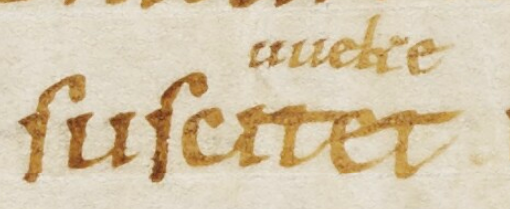 uuekce
suscitet